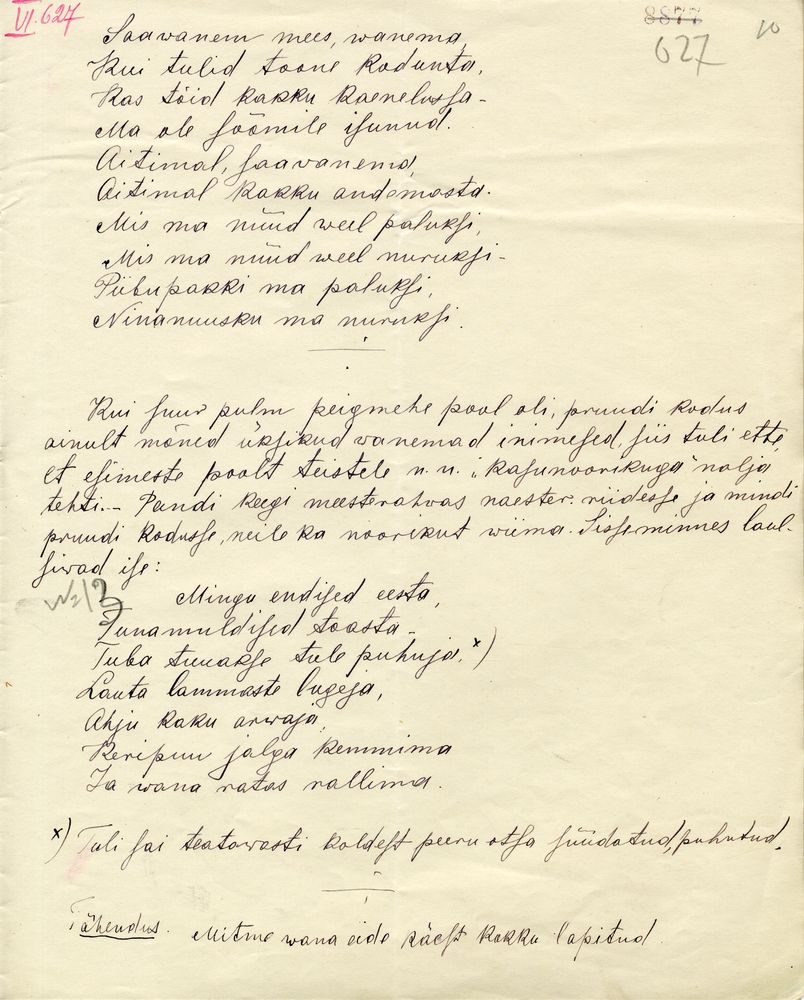 VI.627
8877
627
10
Saawanem mees, wanema,
Kui tulid toone kodunta,
Kas tõid kakku kaenelussa -
Ma ole söömile isunud.
Aitimal, saawanema,
Aitimal kakku andemasta.
Mis ma nüüd weel paluksi,
Mis ma nüüd weel nuruksi -
Piibupakki ma paluksi,
Ninanuusku ma nuruksi.
Kui suur pulm peigmehe pool oli, pruudi kodus
ainult mõned üksikud wanemad inimesed, siis tuli ette,
et esimeste poolt teistele n.n. "kasunoorikuga" nalja
tehti. - Pandi keegi meesterahwas naester. riidesse ja mindi
pruudi kodusse, neile ka noorikut wiima. Sisse minnes laul-
siwad ise:
Mingu endised eesta,
Tunamuldised toasta -
Tuba tuuakse tule puhuja, x)
Lauta lammaste lugeja,
Ahju kaku arwaja,
Keripuu jalga kemmima
Ja wana ratas rallima.
x) Tuli sai teatawasti koldest peeru otsa süüdatud, puhutud.
Tähendus. Mitme wana eide käest kokku lapitud